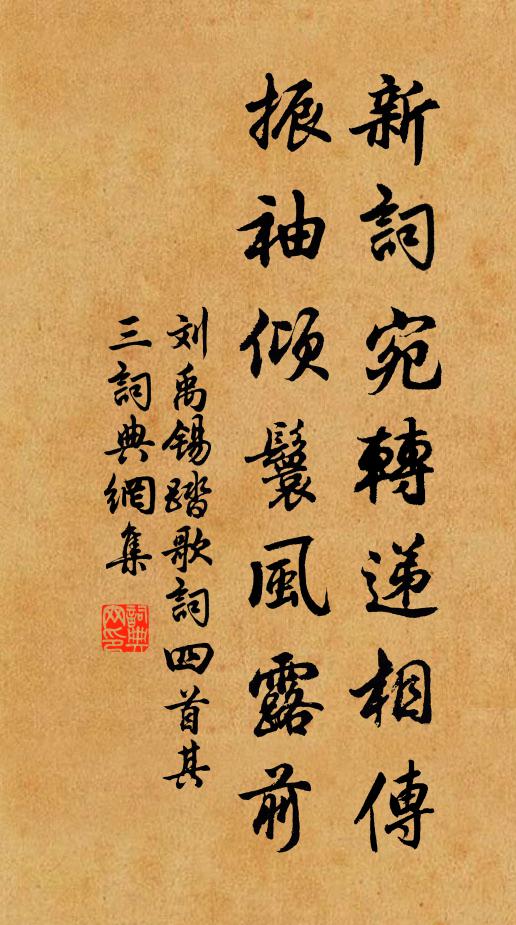 新詞宛轉遞相傳
振袖傾鬟風露前
刘禹锡踏歌詞四首其
三詞典網集
詞典网印